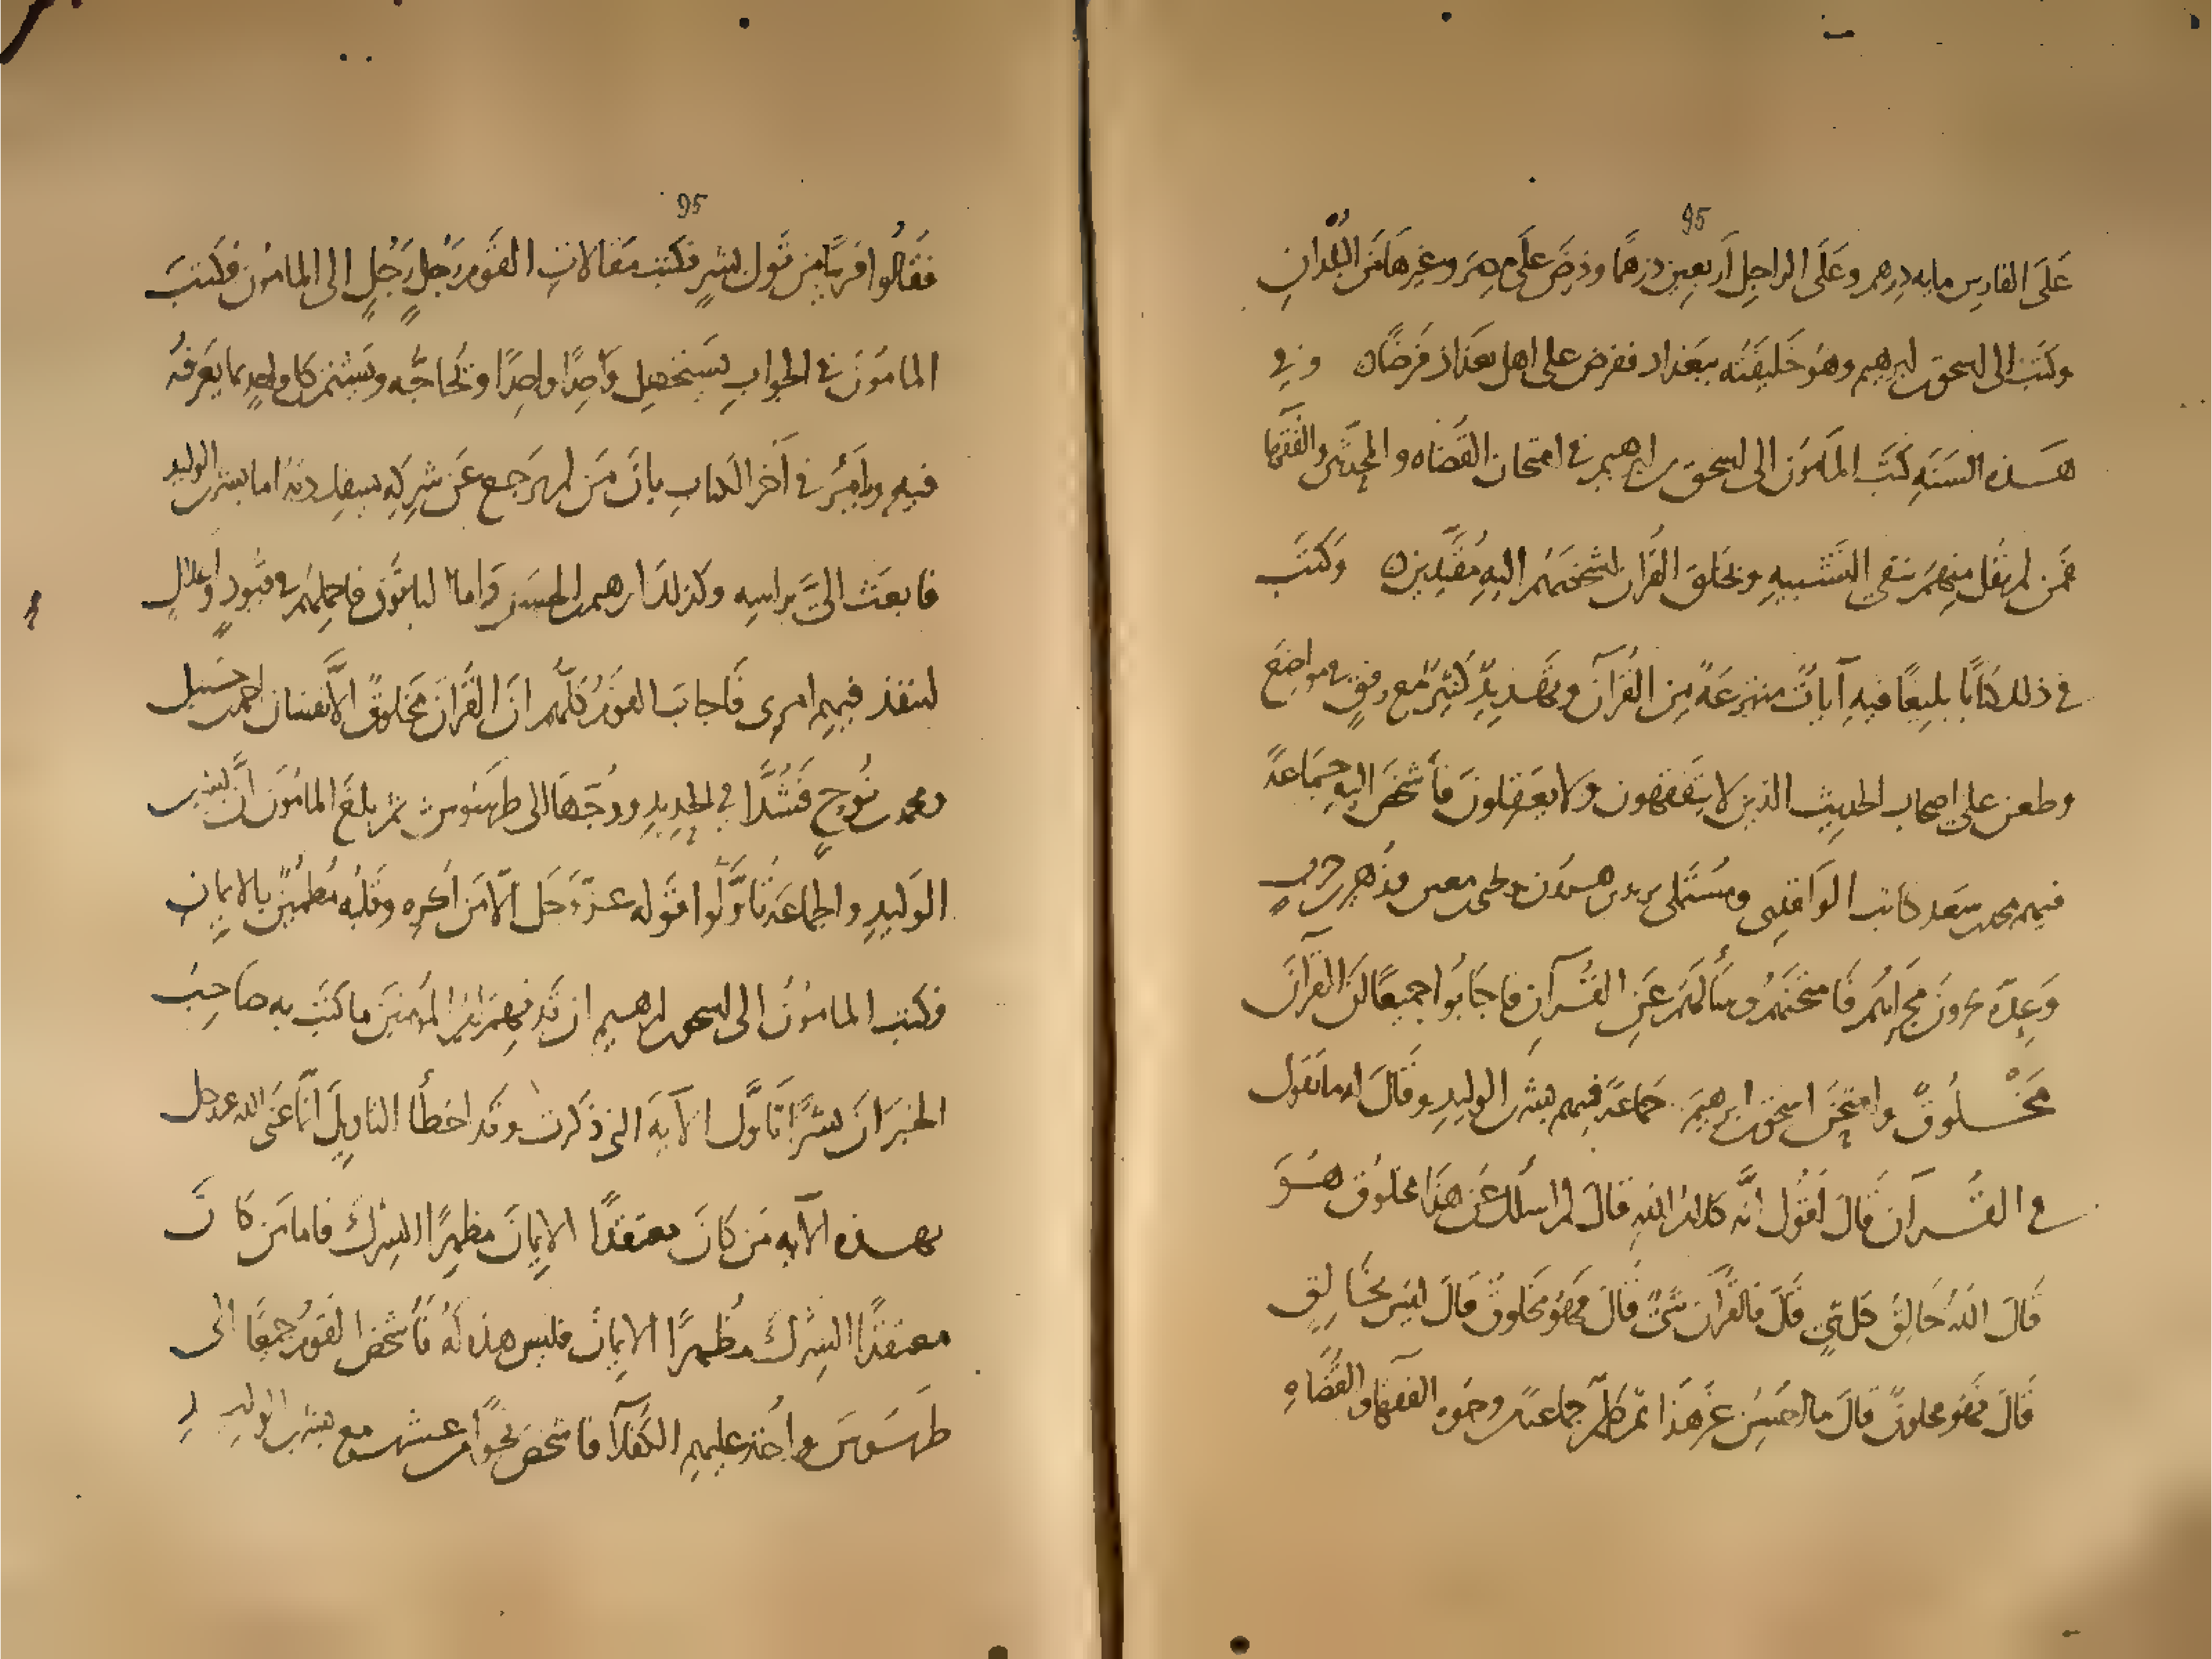 95
على الفارس مايه درهم وعلى الراجل أربعين درهمًا وفرض على مصر وغيرها من البلدان
وكتب الى اسحق بن ابرهيم وهو خليفته ببغداد ففرض على اهل بغداد فرضًا وفي
هذه السنة كتب المأمون الى اسحق بن ابرهيم في امتحان القضاه والمحدثين والفقها
فمن لم يقل منهم بنفي التشبيه وبخلق القرآن اشخصهم اليه مقيدين وكتب
في ذلك كتابًا بليغًا فيه آيات منتزعة من القرآن وتهديد كثير مع رفق في مواضع
وطعن على اصحاب الحديث الذين لا يتفقهون ولا يعقلون فأشخص اليه جماعة
فيهم محمد بن سعد كاتب الواقدي ومستملي يزيد بن هرون ويحيى بن معين وزهير بن حرب
وعدة يجرون مجراهم فامتحنهم وسألهم عن القرآن فاجابوا جميعًا ان القرآن
مخلوق وامتحن اسحق بن ابرهيم جماعة فيهم بشر بن الوليد وقال له ما تقول
في القرآن قال اقول انه كلام الله قال لم اسلك عن هذا مخلوق هو
قال الله خالق كل شي قال فالقرآن شي قال نعم قال فمخلوق قال ليس بخالق
قال فهو مخلوق قال ما احسن غير هذا ثم كلم جماعة من وجوه الفقها والقضاه
95
فقالوا قريبًا من قول بشر فكتب مقالات القوم رجل رجل الى المامون فكتب
المامون في الجواب يستجهل واحدًا واحدًا ويحاجه ويشتم كل واحد بما يعرفه
فيه ويأمر في آخر الكتاب بان من لم يرجع عن شركه يسفك دمه اما بشر بن الوليد
فابعث الي براسه وكذلك ابرهيم بن واما الباقون فاحملهم في قيود واغلال
لينفذ فيهم امري فأجاب القوم كلهم ان القرآن مخلوق الا نفسان احمد بن حنبل
ومحمد بن نوح فشدا في الحديد ووجها الى طرسوس ثم بلغ المامون ان بشر بن
الوليد والجماعة تأولوا قوله عز وجل الا من أكره وقلبه مطمئن بالايمان
فكتب المامون الى اسحق بن ابرهيم ان قد فهم امير المومنين ما كتب به صاحب
الخبر ان بشرًا تأول الآية التي ذكرت وقد اخطأ التاويل انما عنى الله عز وجل
بهذه الآية من كان معتقدًا الايمان مظهرًا الشرك فاما من كان
معتقدًا الشرك مظهرًا الايمان فليس هذه له فأشخص القوم جميعًا الى
طرسوس واخذ عليهم الكفلآ فاشخص نحوًا من عشرين مع بشر بن الوليد